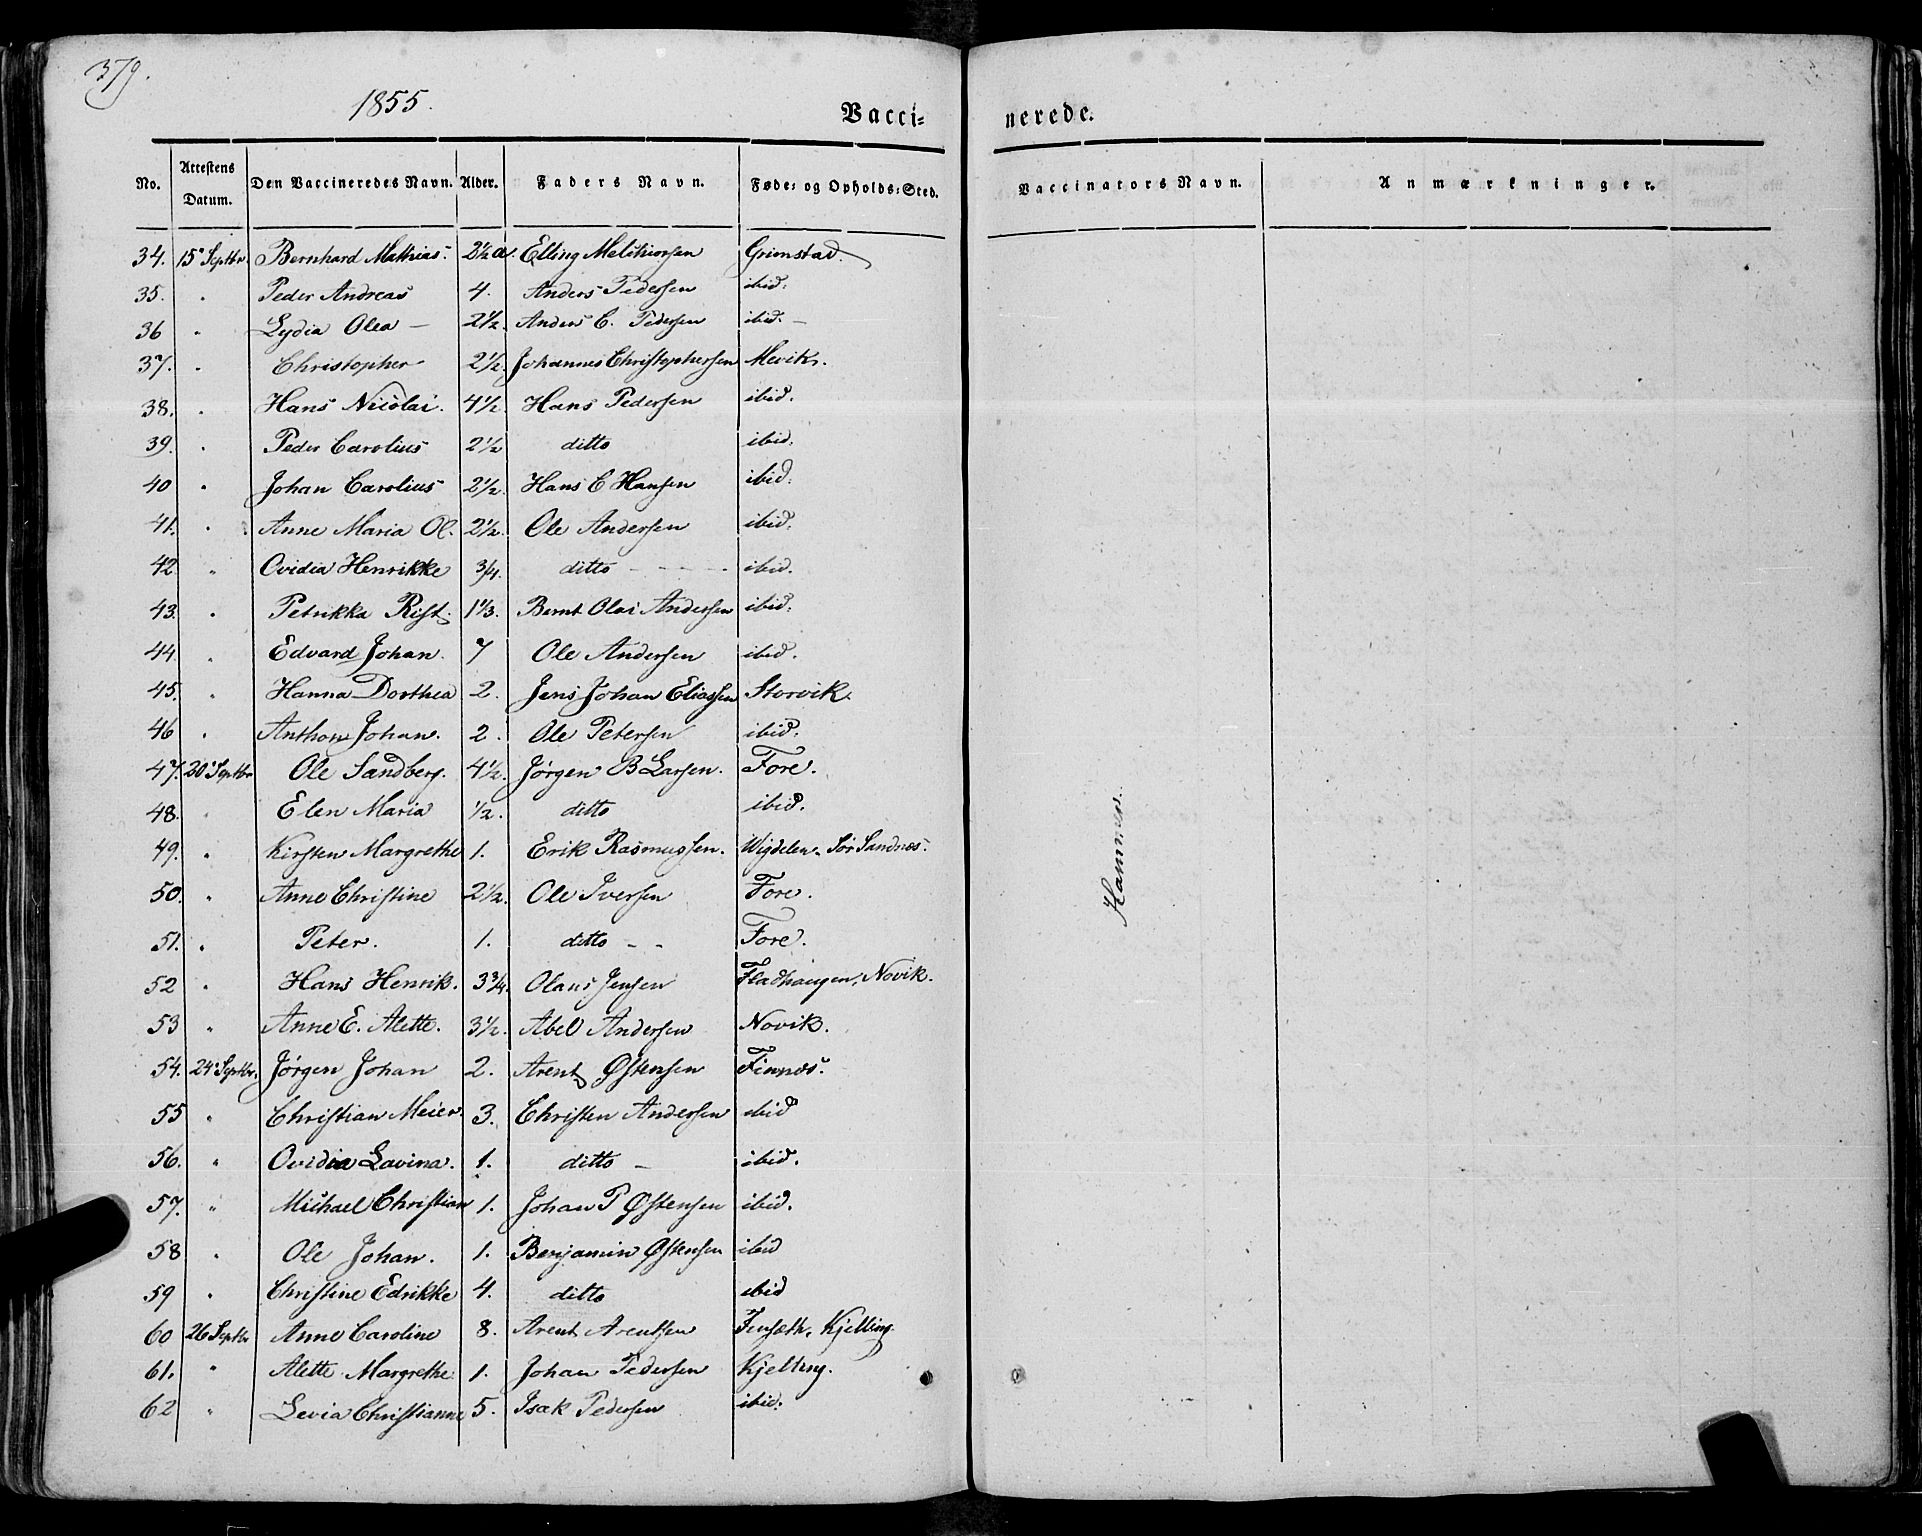 379.
1855.
Vacci- nerede.
No. Attestens Datum. Den Vaccineredes Navn. Alder. Faders Navn. Føde- og Opholds-Sted. Vaccinators Navn. Anmærkninger.
34. 15 Septbr. Bernhard Mathias. 2½ a. Elling Melchiorsen Grimstad.
35. " Peder Andreas 4. Anders Pedersen ibid.
36 " Lydia Olea - 2½. Anders C. Pedersen ibid. -
37. " Christopher 2½. Johannes Christophersen Mevik.
38. " Hans Nicolai. 4½. Hans Pedersen ibid.
39. " Peder Carolius 2½ ditto ibid.
40 " Johan Carolius 2½. Hans C Hansen ibid.
41. " Anne Maria Ol. 2½. Ole Andersen ibid.
42 " Ovidia Henrikke ¾. ditto - - - - ibid.
43. " Petrikka Rist. 1⅓. Bernt Olai Andersen ibid.
44 " Edvard Johan. 7 Ole Andersen ibid.
45. " Hanna Dorthea 2. Jens Johan Eliassen Storvik.
46 " Anthon Johan. 2. Ole Petersen ibid.
47. 20 Septbr Ole Sandberg. 4½. Jørgen B Larsen. Fore.
48. " Elen Maria ½. ditto ibid.
49. " Kirsten Margrethe 1. Erik Rasmussen. Wigdelen. Sør Sandnes.
50. " Anne Christine 2½. Ole Iversen Fore.
51. " Peter. 1. ditto - - Fore.
52 " Hans Henrik. 3¾. Olaus Jensen Fladhaugen, Novik.
53 " Anne E. Alette. 3½. Abel Andersen Novik.
54. 24 Septbr. Jørgen Johan 2. Arent Østensen Finnes.
55 " Christian Meier. 3. Christen Andersen ibid
56. " Ovidia Lavina. 1. ditto - ibid.
57. " Michael Christian 1. Johan P Østensen ibid.
58 " Ole Johan. 1. Benjamin Østensen ibid
59 " Christine Edrikke 4. ditto ibid
60 26 Septbr Anne Caroline 8. Arent Arentsen Kjelling.
61. " Alette Margrethe. 1. Johan Pedersen Kjelling.
62 " Levia Christianne 5. Isak Pedersen ibid.
Hammer.